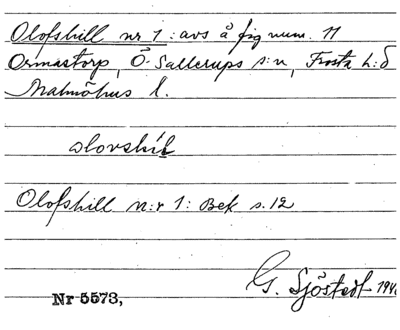 Olofshill nr 1: avs å fig num. 11
Ormastorp, Ö. Sallerups s:n, Frosta h:d
Malmöhus l.
olovshil
Olofshill n:r 1: Bek s. 12
G. Sjöstedt 194
Nr 5573,